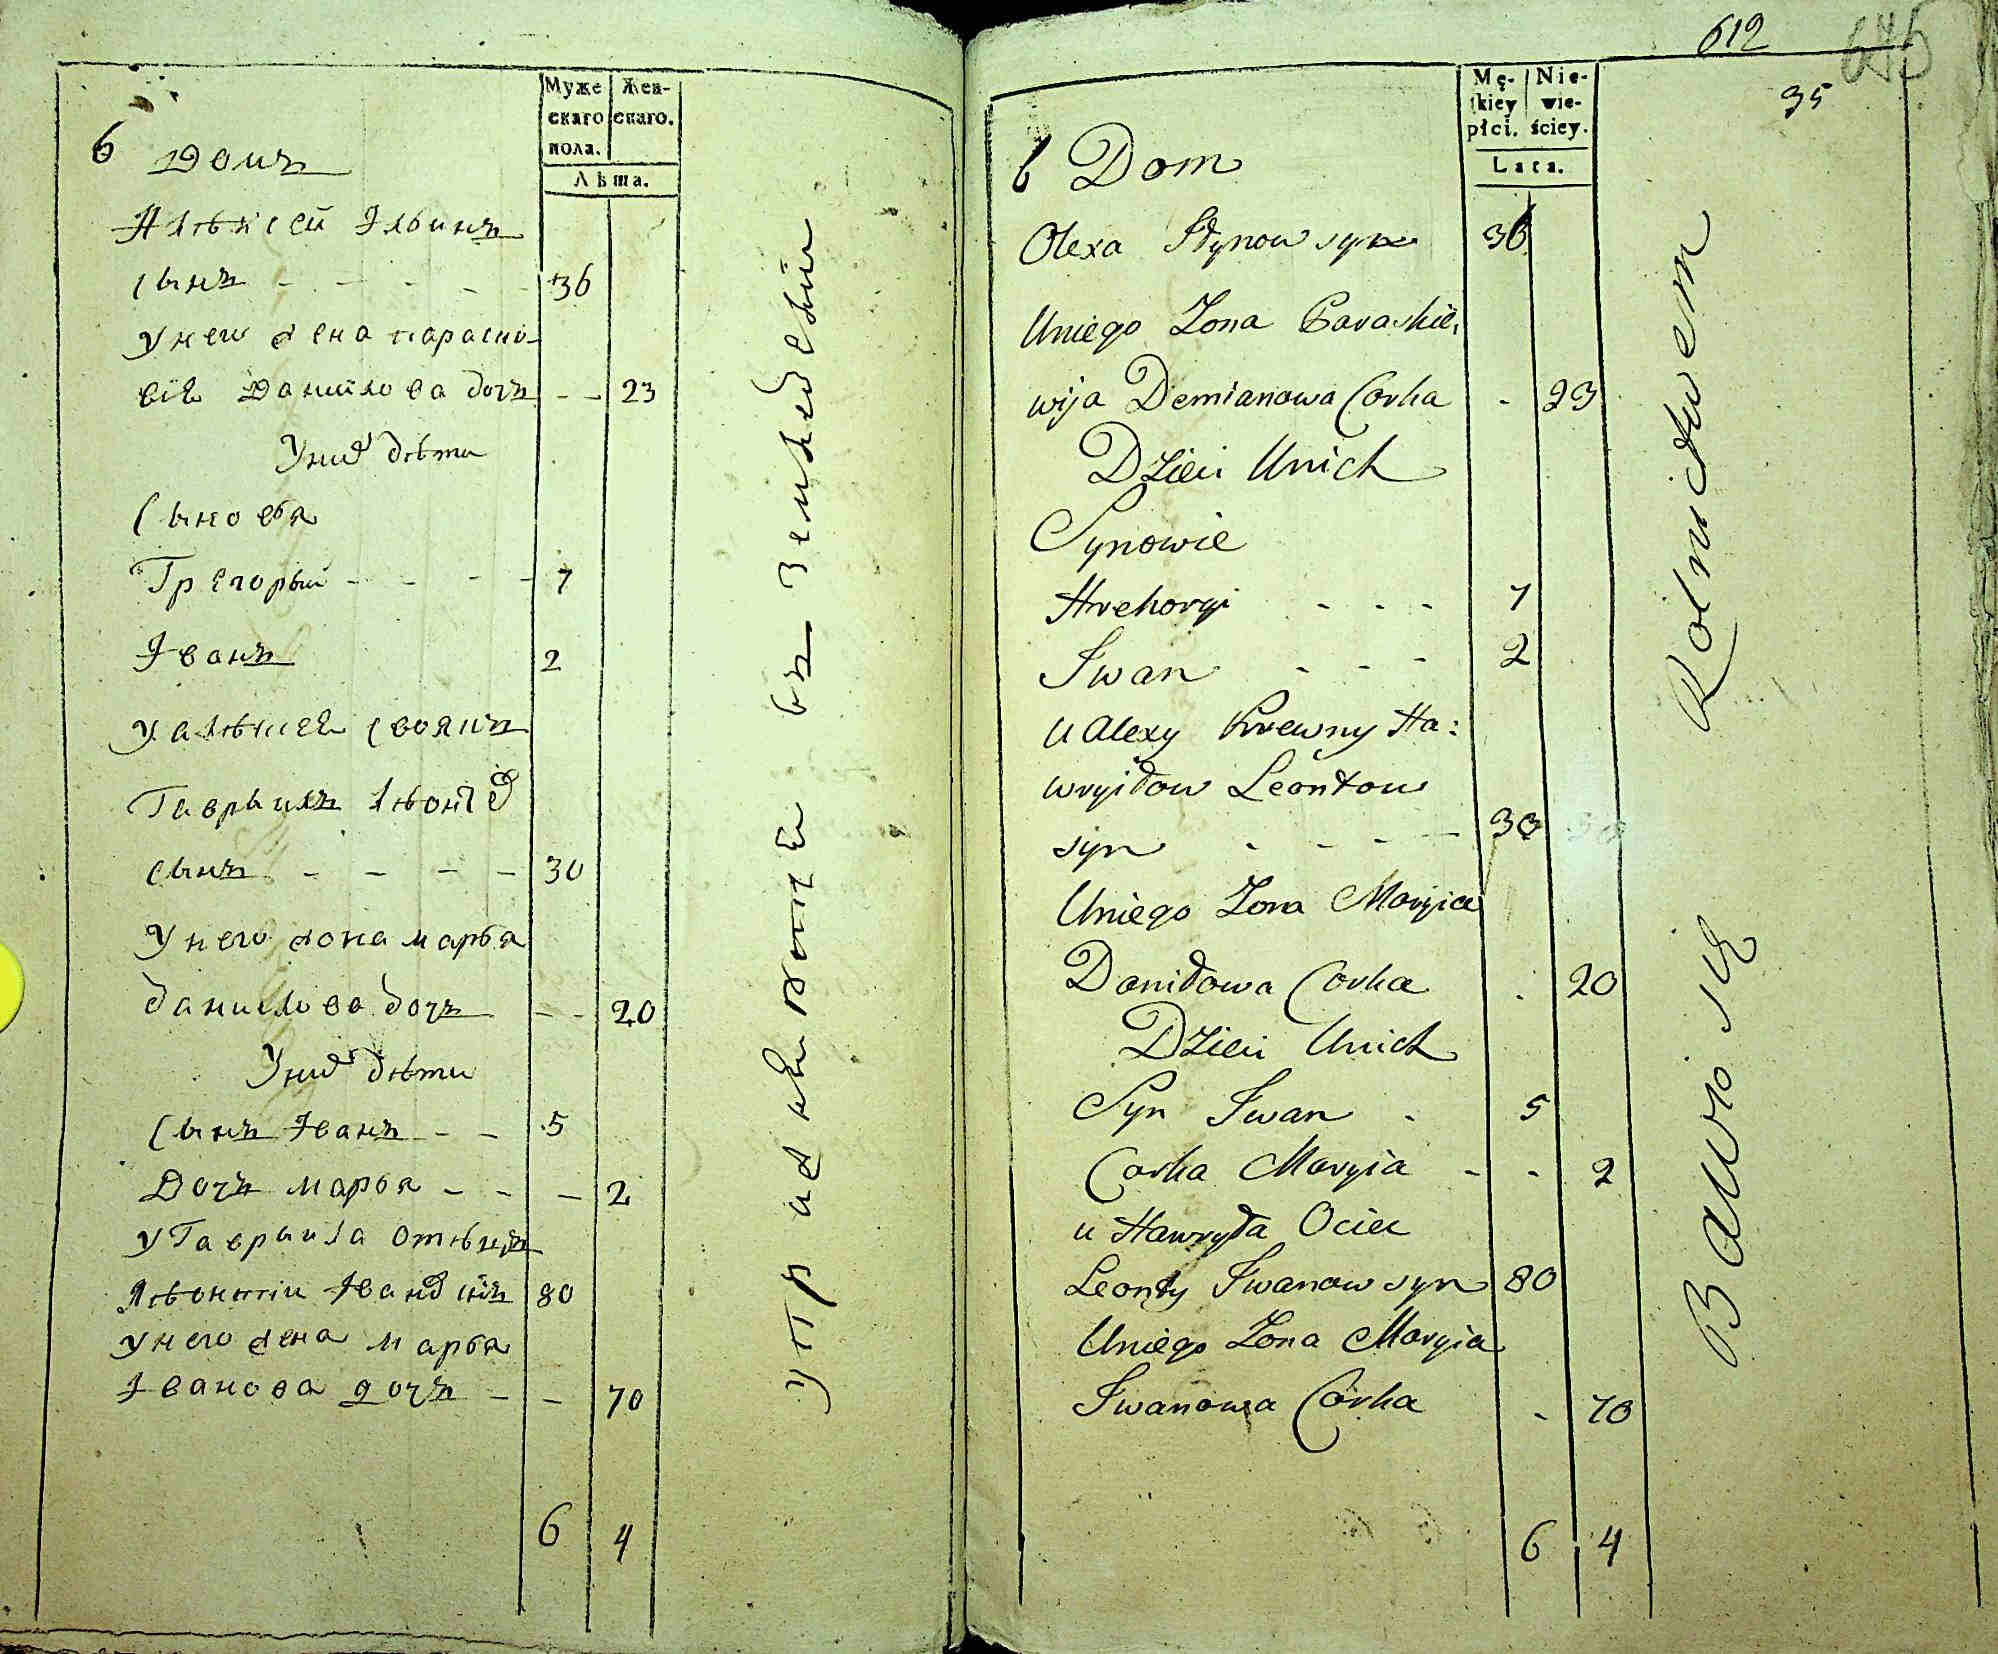 Муже
скаго
пола.
Жен-
скаго.
Лѣта.
6 Домъ
Алѣксей Ильинъ
сынъ - - - - - 36
У него жена параскѣ-
вія Данилова дочъ - - 23
У них дѣти
Сыновья
Грегорый - - - - 7
Іванъ 2
У алѣксея своякъ
Гаврыилъ Лѣонтов
сынъ - - - - 30
У него жона марья
данилова дочъ - - 20
У них дѣти
Сынъ Іванъ - - 5
Дочъ марья - - - 2
У Гаврыила отѣцъ
Лѣонтіи Іванов сынъ 80
У него жена марья
Іванова дочъ - - 70
6 4
упражняются въ
612
645
35
Mę-
skiey
płci.
Nie-
wie-
ściey.
Lata.
6 Dom
Olexa syn 36
Uniego Zona Paraskie,
wija Demianowa Corka - 23
Dzieci Unich
Synowie
Hrehoryi - - - 7
Iwan - - - 2
u Alexy Krewny Ha:
wryiłow Leontow
syn - - - - 30
Uniego Zona Maryia
Daniłowa Corka . 20
Dzieci Unich
Syn Iwan - 5
Corka Maryia - - 2
u Hawryła Ociec
Leonty Iwanow syn 80
Uniego Zona Maryia
Iwanowa Corka - 70
6 4
Bawio się Rolnictwem